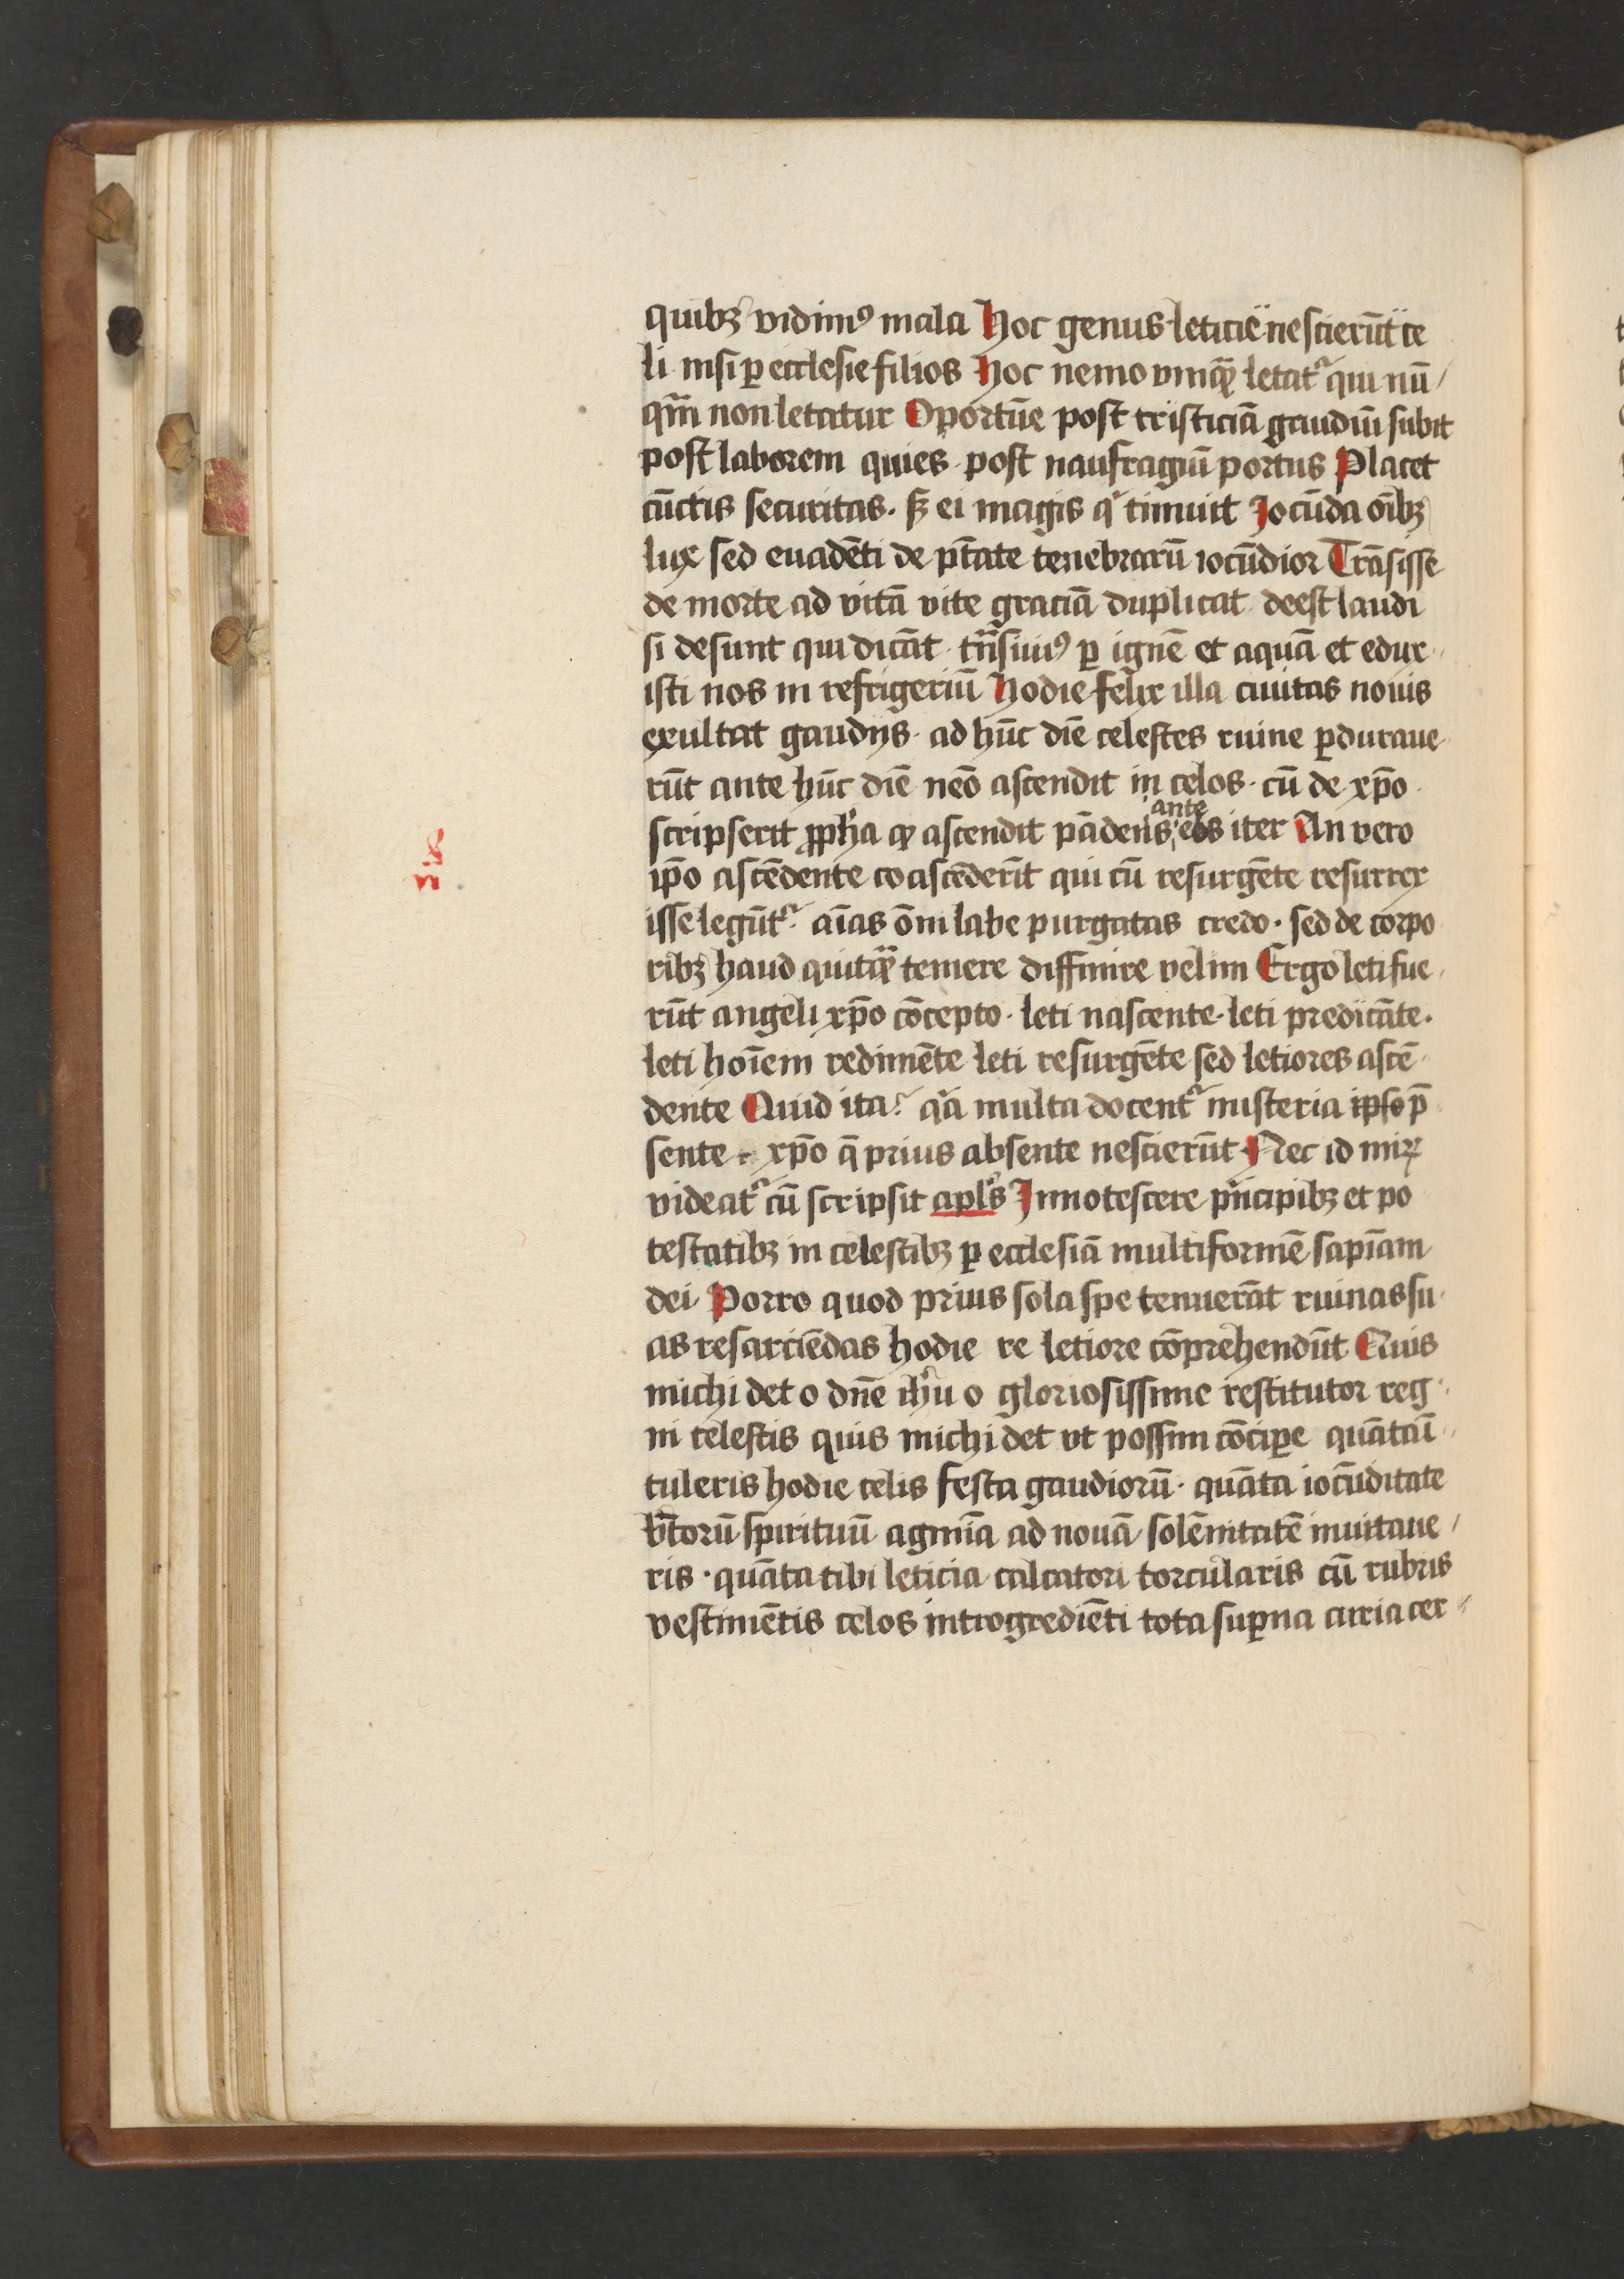 quibꝫ vidimꝰ mala Hoc genus leticie nescierūt ce
li nisi ꝑ ecclesie filios Hoc nemo vmqꝫ letatᷣ qui nū
qm̄ non letatur Oportūe post tristiciā gaudiū subit
post laborem quies · post naufragiū portus Placet
cūctis securitas · sꝫ ei magis qͥ timuit Jocūda oībꝫ
lux sed euadēti de ptāte tenebrarū iocūdior Trāsisse
de morte ad vitā vite graciā duplicat · deest laudi
si desunt qui dicāt · trāsiuimꝰ ꝑ ignē et aquā et edux
isti nos in refrigeriū Hodie felix illa ciuitas nouis
exultat gaudijs · ad hūc diē celestes ruine ꝑduraue
rūt ante hūc diē nēo ascendit in celos · cū de xp̄o
scripserit ꝓph̄a qꝫ ascendit pādens ante eos iter An vero
ip̄o ascēdente coascēderīt qui cū resurgēte resurrex
isse legūtᷣ · aīas ōni labe purgatas credo · sed de corpo
ribꝫ haud quitqꝫ temere diffinire velim Ergo leti fue
rūt angeli xp̄o cōcepto · leti nascente · leti predicāte ·
leti hoīem redimēte leti resurgēte sed letiores ascē
dente Quid ita? qͥa multa docentᷣ misteria ipso p̄
sente xp̄o q̄ prius absente nescierūt Nec id miꝝ
videatᷣ cū scripsit apl̄s Jnnotescere pͥncipibꝫ et po
testatibꝫ in celestibꝫ ꝑ ecclesiā multiformē sapīam
dei Porro quod prius sola spe tenuerāt ruinas su
as resarciēdas hodie re letiore cōprehendūt Quis
michi det o dn̄e ih̄u o gloriosissime restitutor reg
ni celestis quis michi det vt possim cōciꝑe quātā ī
tuleris hodie celis festa gaudiorū · quāta iocūditate
bt̄orū spirituū agmīa ad nouā solēnitatē inuitaue
ris · quāta tibi leticia calcatori torcularis cū rubris
vestimētis celos introgredienti tota suꝑna curia cer